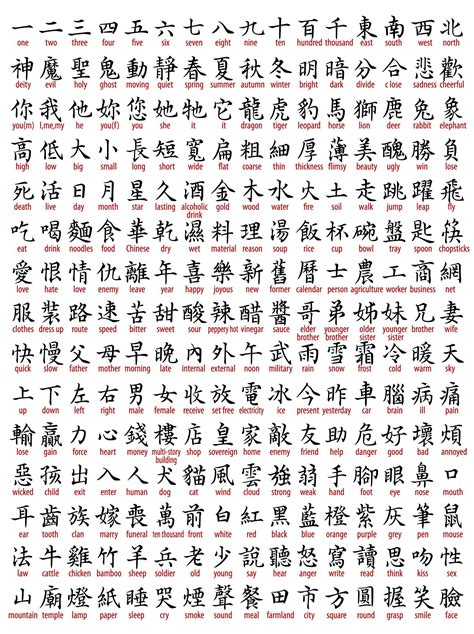 一二三四五六七八九十百千東南西北
one two three four five six seven eight nine ten hundred thousand east south west north
神魔聖鬼動靜春夏秋冬明暗分合悲歡
deity evil holy ghost moving quiet spring summer autumn winter bright dark divide close sadness cheerful
你我他妳您她牠它龍虎豹馬獅鹿兔象
you(m) I,me,my he you(f) you she it it dragon tiger leopard horse lion deer rabbit elephant
高低大小長短寬扁粗細厚薄美醜勝負
high low big small long short wide flat coarse thin thickness flimsy beauty ugly win lose
死活日月星久酒金木水火土走跳躍飛
death live day moon star lasting alcoholic drink gold wood water fire soil walk jump leap fly
吃喝麵食華乾濕料理湯飯杯碗盤匙筷
eat drink noodles food Chinese dry wet material reason soup rice cup bowl tray spoon chopsticks
愛恨情仇離年喜樂新舊曆士農工商網
love hate love enemy leave year happy joyous new former calendar person agriculture worker business net
服裝路速苦甜酸辣醋醬哥弟姊妹兄妻
clothes dress up route speed bitter sweet sour peppery hot vinegar sauce elder brother younger brother elder sister younger sister brother wife
快慢父母早晚內外午軍雨雪霜冷暖天
quick slow father mother morning late internal external noon military rain snow frost cold warm sky
上下左右男女收放電冰今昨車腦病痛
up down left right male female receive set free electricity ice present yesterday car brain ill pain
輸贏力心錢樓店皇家敵友助危好壞煩
lose gain force heart money multi-story building shop sovereign home enemy friend help danger good bad annoyed
惡孩出入人犬貓風雲強弱手腳眼鼻口
wicked child exit enter human dog cat wind cloud strong weak hand foot eye nose mouth
耳齒族嫁喪萬前白紅黑藍橙紫灰筆鼠
ear tooth clan marry funeral ten thousand front white red black blue orange purple grey pen mouse
法牛雞竹羊兵老少說聽怒寫讀思吻性
law cattle chicken bamboo sheep soldier old young say listen angry write read think kiss sex
山廟燈紙睡哭煙聲餐田市方圓握臉
mountain temple lamp paper sleep cry smoke sound meal farmland city square round grasp face